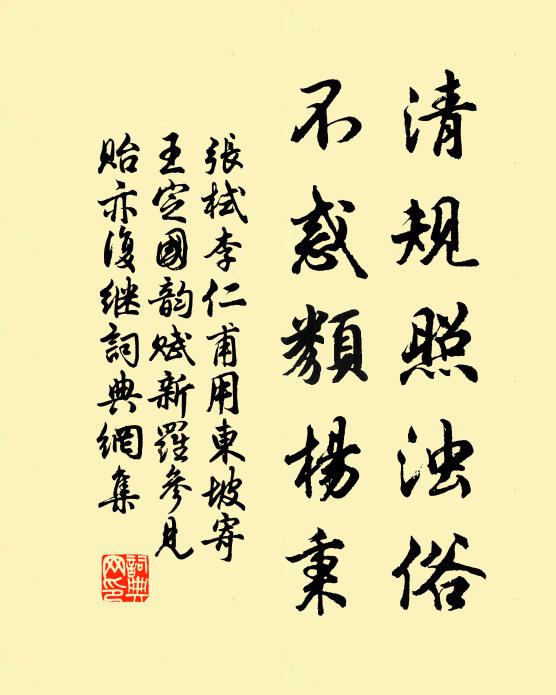 清規照浊俗
不惑類楊秉
張栻李仁甫用東坡寄
王定國韵赋新羅参見
貽亦復继詞典網集
詞典网印